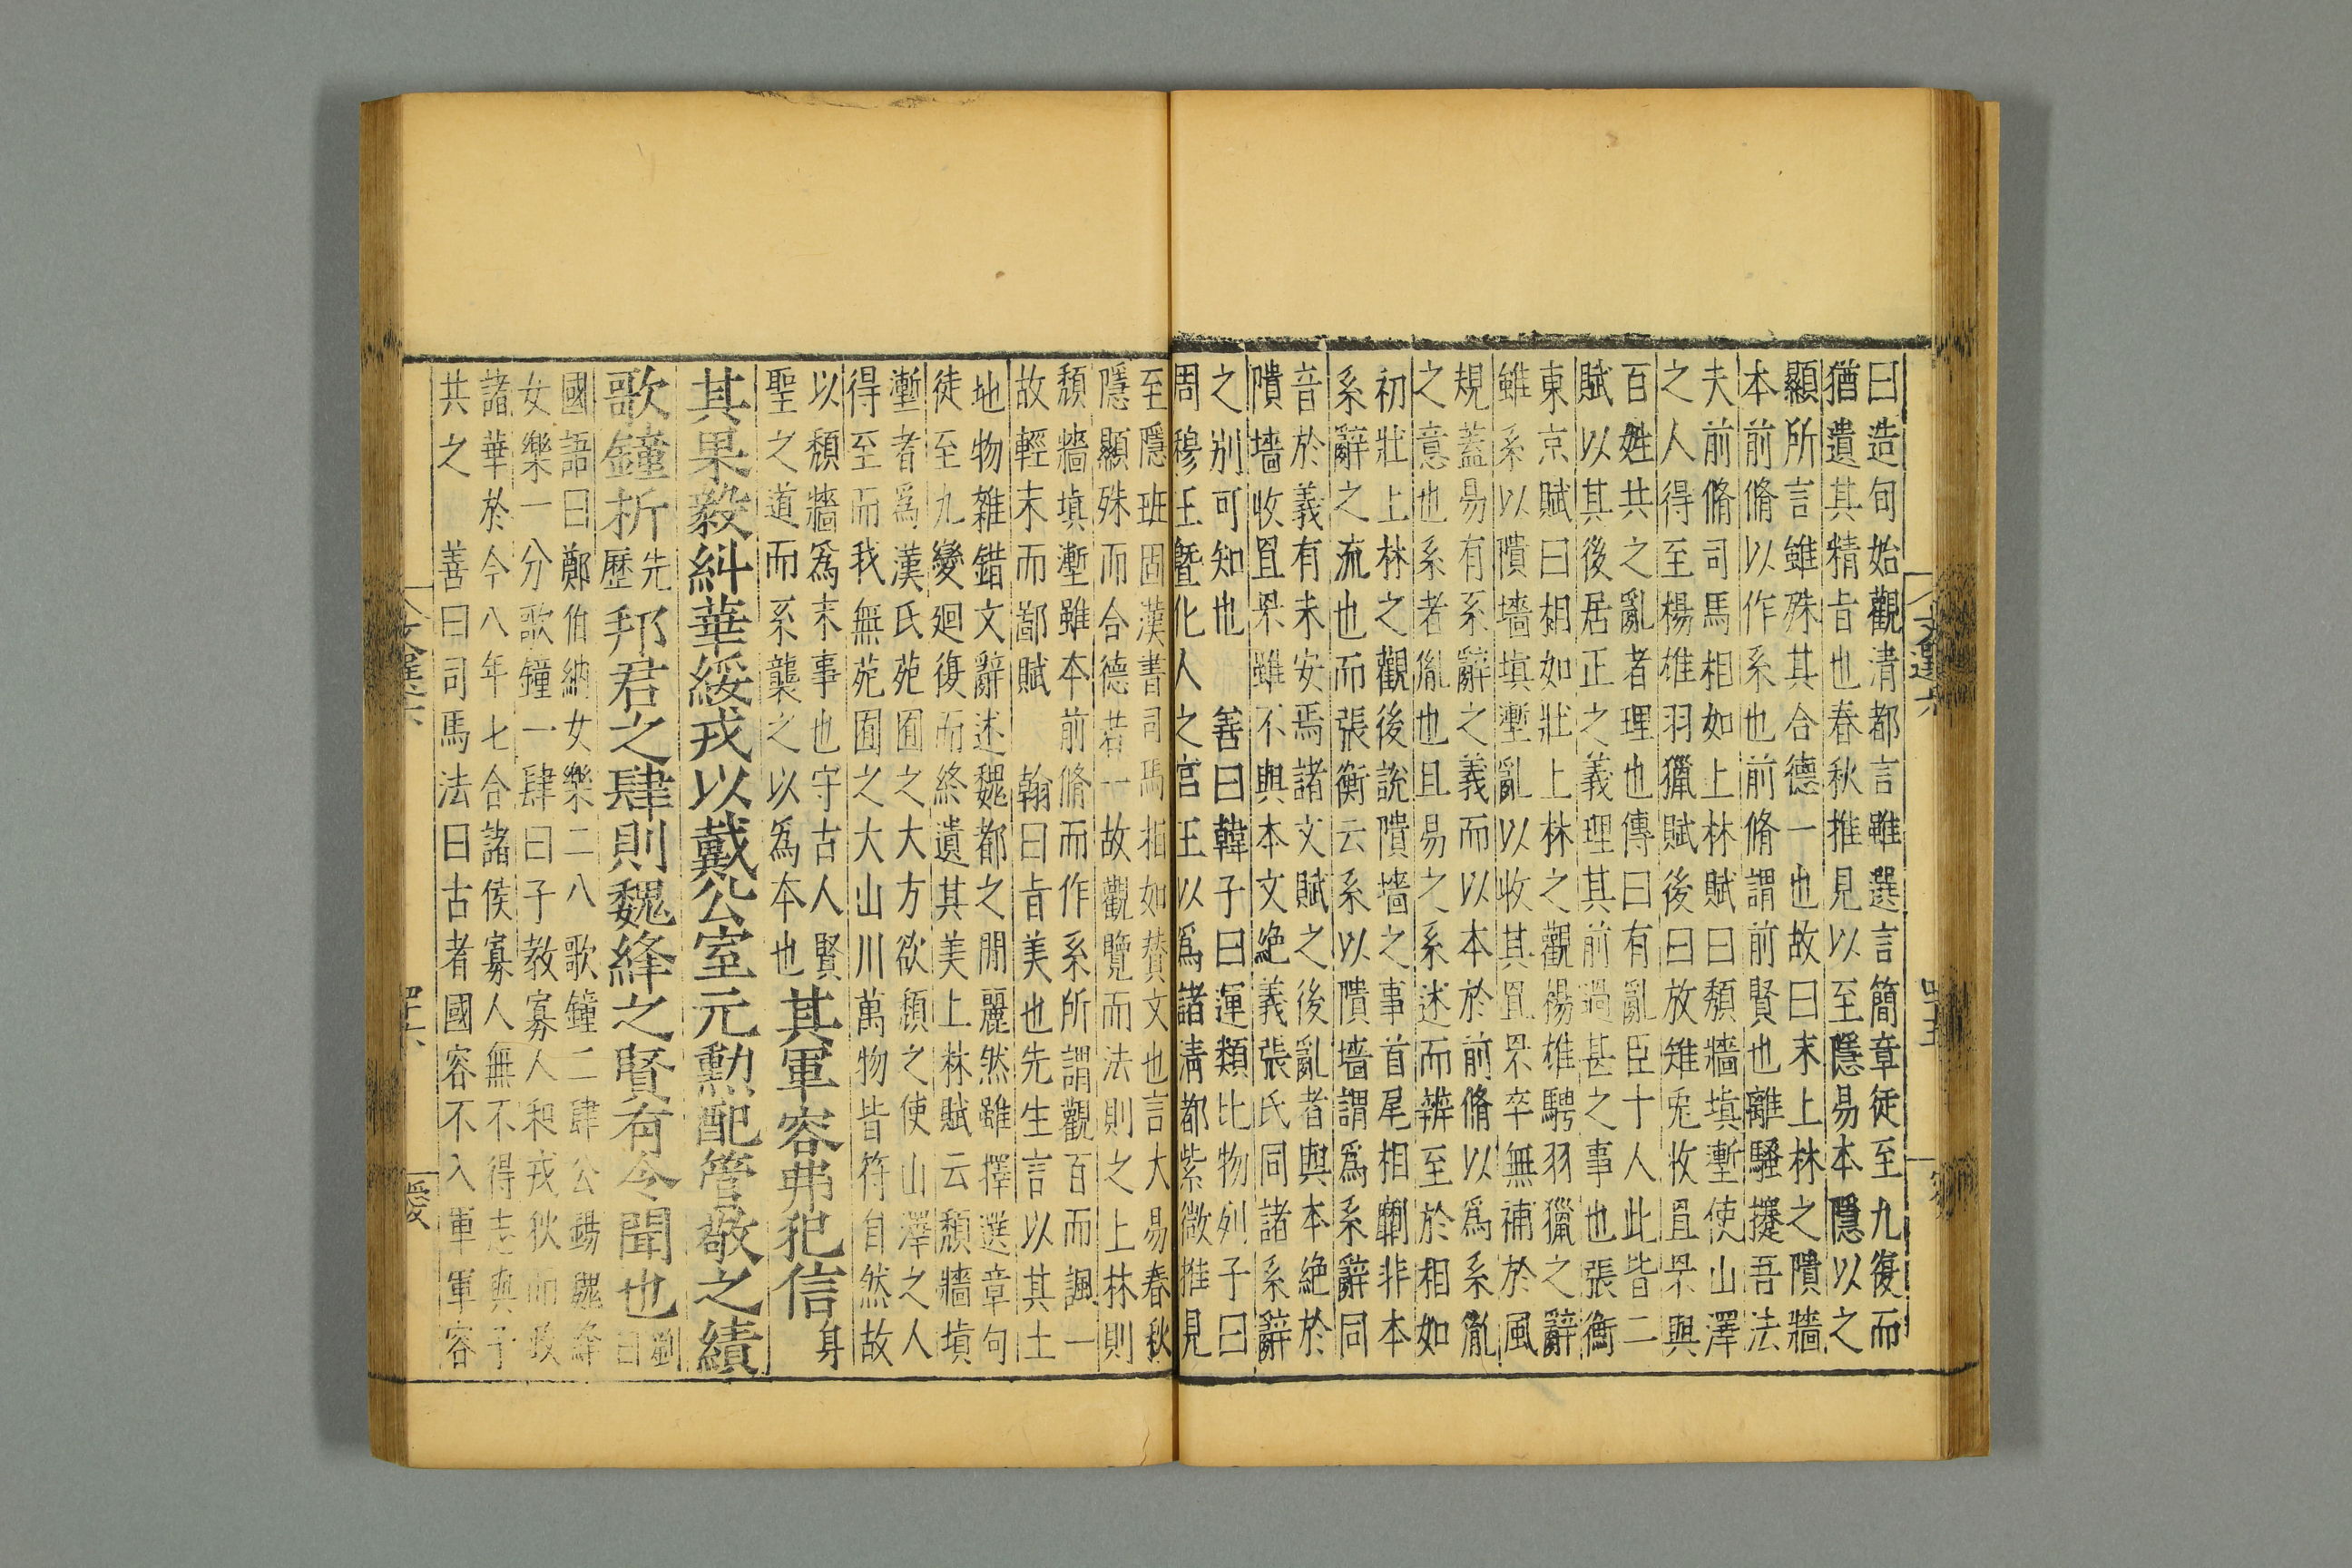 曰造句始觀清都言雖選言簡章徒至九復而
猶遺其精旨也春秋推見以至隱易本隱以之
顯所言雖殊其合德一也故曰末上林之隤牆
本前脩以作系也前脩謂前賢也離騷擥吾法
夫前脩司馬相如上林賦曰頹牆填壍使山澤
之人得至楊雄羽獵賦後曰放雉兎收罝罘與
百姓共之亂者理也傳曰有亂臣十人此皆二
賦以其後居正之義理其前過甚之事也張衡
東京賦曰相如壯上林之觀楊雄騁羽獵之辭
雖系以隤墻填壍亂以收其罝罘卒無補於風
規蓋易有系辭之義而以本於前脩以爲系亂
之意也系者亂也且易之系述而辨至於相如
初壯上林之觀後說隤墻之事首尾相劘非本
系辭之流也而張衡云系以隤墻謂爲系辭同
音於義有未安焉諸文賦之後亂者與本絶於
隤墻收罝罘雖不與本文絶義張氏同諸系辭
之别可知也 善曰韓子曰連類比物列子曰
周穆王暨化人之宫王以爲諸清都紫微推見
至隱班固漢書司馬相如賛文也言大易春秋
隱顯殊而合德若一故觀覽而法則之上林則
頹牆填壍雖本前脩而作系所謂觀百而諷一
故輕末而鄙賦 翰曰旨美也先生言以其土
地物雜錯文辭述魏都之閒麗然雖擇選章句
徒至九變廻復而終遺其美上林賦云頹牆填
壍者爲漢氏苑囿之大方欲頹之使山澤之人
得至而我無苑囿之大山川萬物皆符自然故
以頹牆爲末事也守古人賢
聖之道而系襲之以爲本也
其軍容弗犯信身
其果毅糾華綏戎以戴公室元勲配管敬之績
歌鐘析先歷邦君之肆則魏絳之賢有令聞也劉曰
國語曰鄭伯納女樂二八歌鐘二肆公錫魏絳
女樂一分歌鐘一肆曰子教寡人和戎狄而政
諸華於今八年七合諸侯寡人無不得志與子
共之 善曰司馬法曰古者國容不入軍軍容